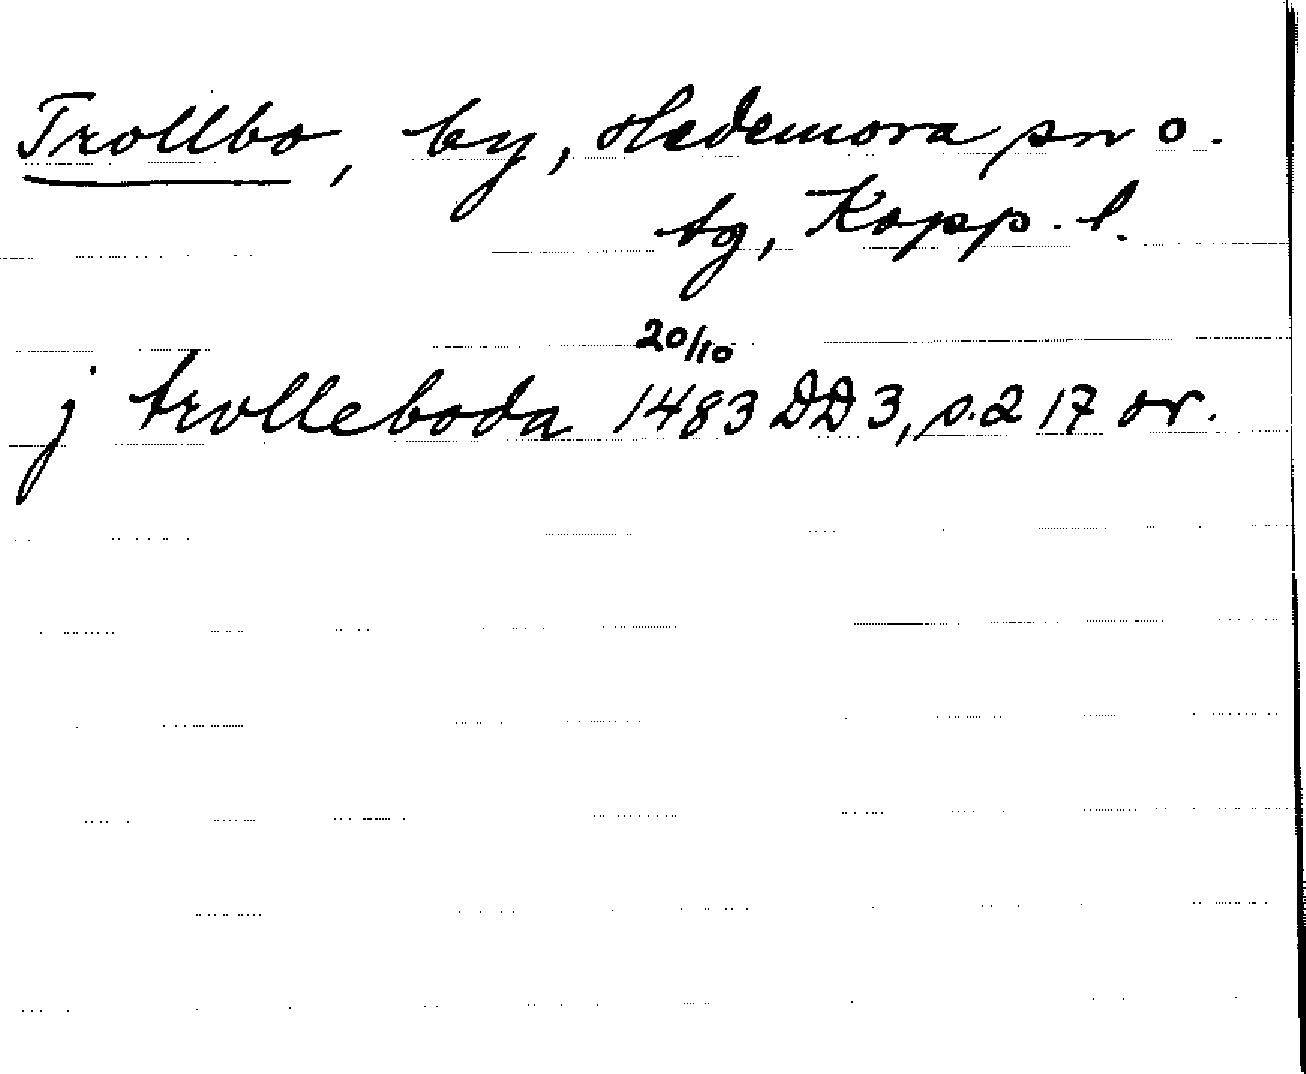 Trollbo, by, Hedemora sn o.
tg, Kopp. l.
20/10
j trolleboda 1483 DD 3, s. 217 or.